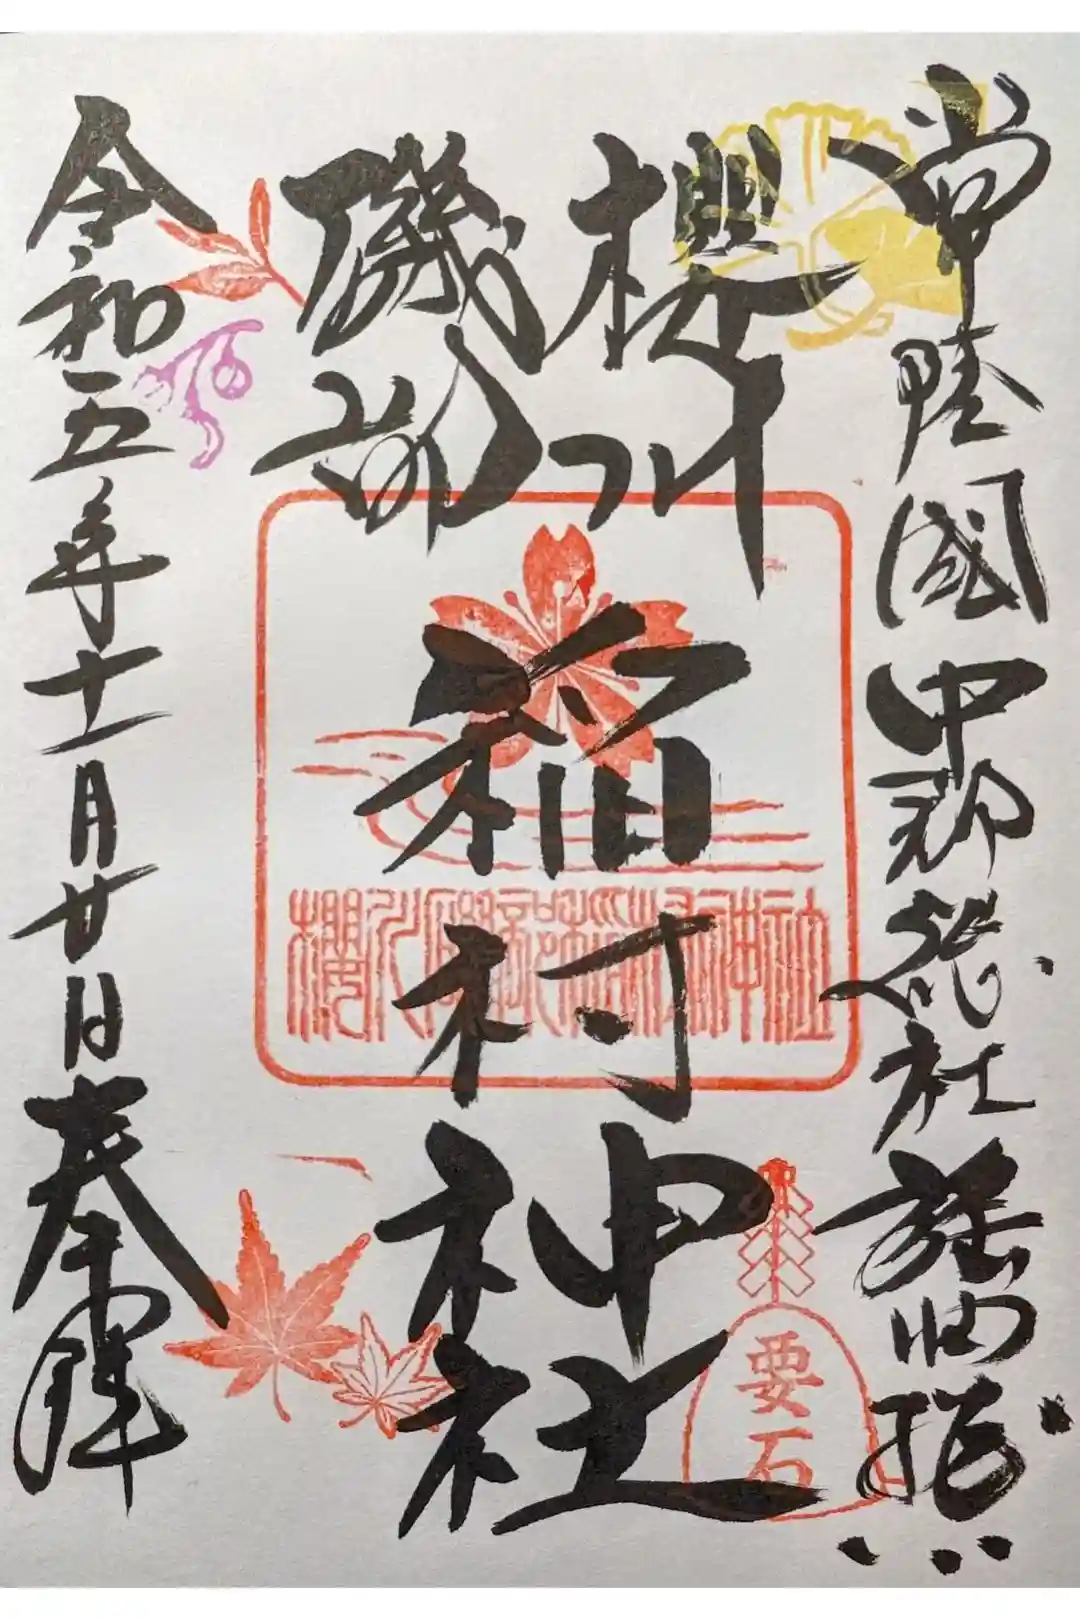 常陸國中郡総社
櫻川
磯部
稲村神社
櫻川磯部稲村神社
要石
令和五年十一月廿日奉拝